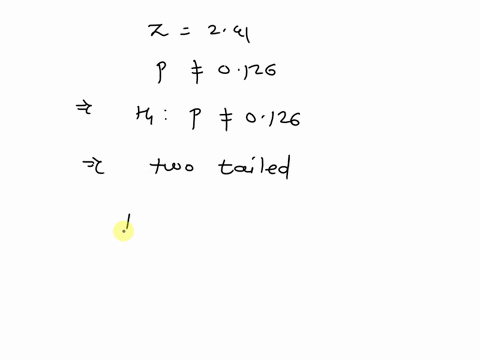 z = 2.41
p ≠ 0.126
⇒ H₁: p ≠ 0.126
⇒ two tailed